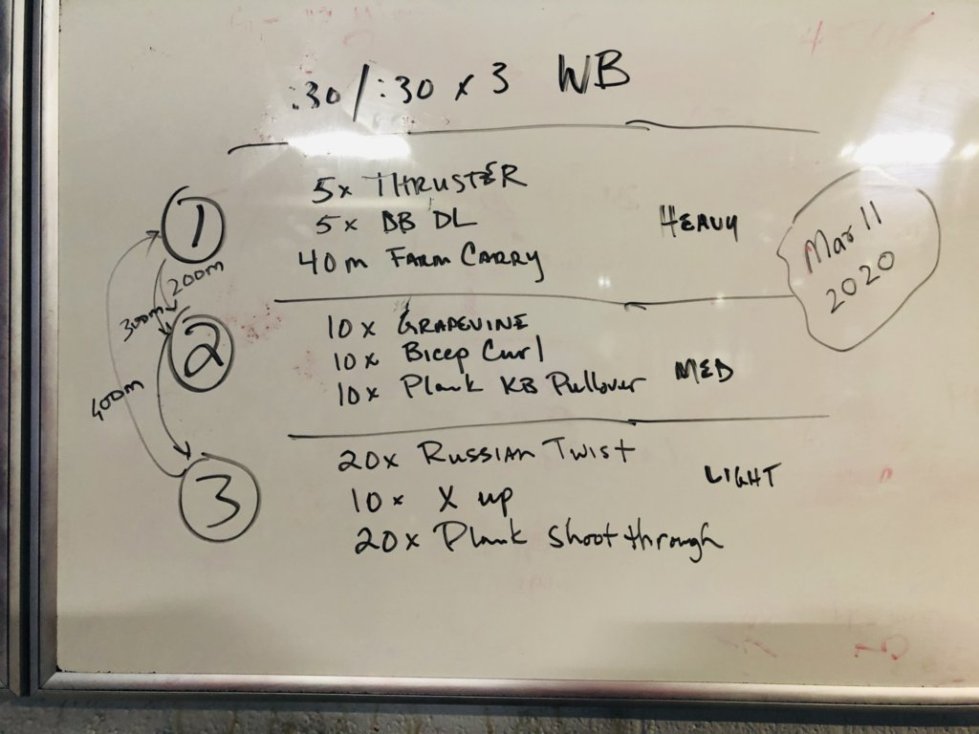 :30/:30 x 3 WB
1
5x THRUSTER
5x DB DL
40m FARM CARRY
HEAVY
Mar 11
2020
200m
300m
2
10x GRAPEVINE
10x Bicep Curl
10x Plank KB Pullover
MED
400m
3
20x RUSSIAN TWIST
10x X up
20x Plank Shoot through
LIGHT